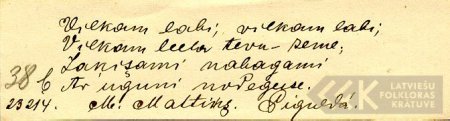 Vilkam labi, vilkam labi;
Vilkam liela tēvu-zeme;
Zaķišami nabagami
38 b Ar uguni nodeguse.
23214. M. Maltiņš. Piguldā.
LATVIEŠU
FOLKLORAS
KRĀTUVE